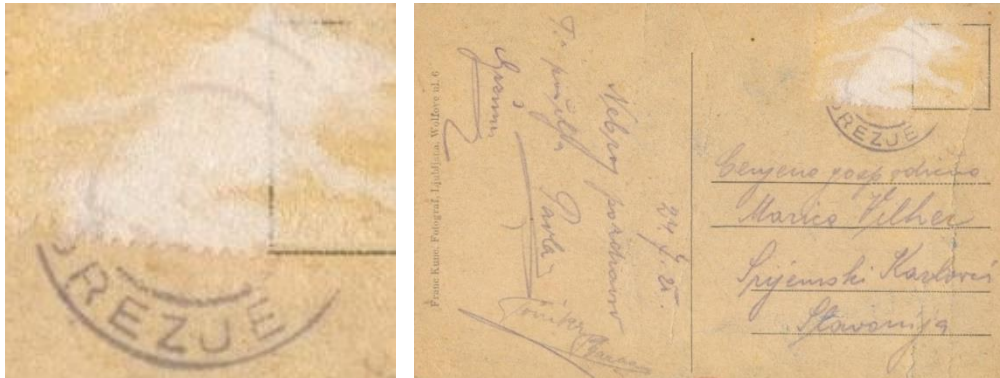 REZJE
REZJE
Franc Kunc, Fotograf, Ljubljana, Wolfova ul. 6
Nebroj pozdravov
Ti pošilja
Pavla
24
Cenjena gospodična
Marica Vilher
Srijemski Karlovci
Slavonija